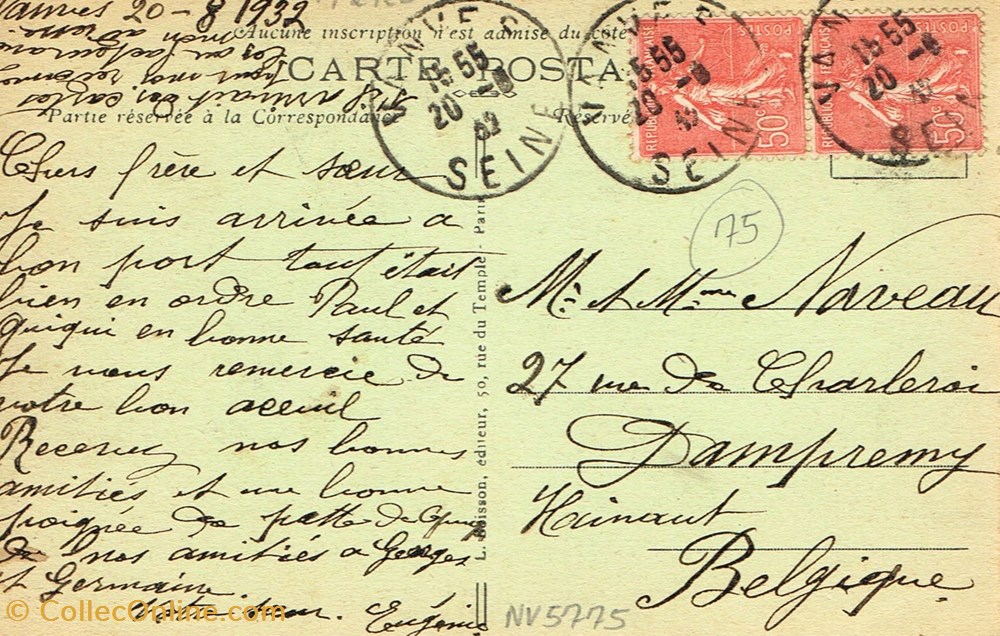 Vanves 20-8 1932
Aucune inscription n'est admise du côté
CARTE POSTA
Partie réservée à la Correspondance
Réservé
VANVES
15 55
20 -8
32
SEINE
VANVES
15 55
20 -8
32
SEINE
VANV
15 55
20 -8
SEIN
RÉPUBLIQUE FRANÇAISE
50c
50c
Chers frère et sœur
Je suis arrivée a
bon port tout était
bien en ordre Paul et
quiqui en bonne santé
Je vous remercie de
votre bon aceuil
Recevez nos bonnes
amitiés et une bonne
poignée de patte de
de nos amitiés a Georges
et Germaine
Votre sœur. Eugénie
L. Buisson, éditeur, 50, rue du Temple - Paris
75
Mr et Mme Naveau
27 rue de Charleroi
Dampremy
Hainaut
Belgique
NV5775
© CollecOnline.com